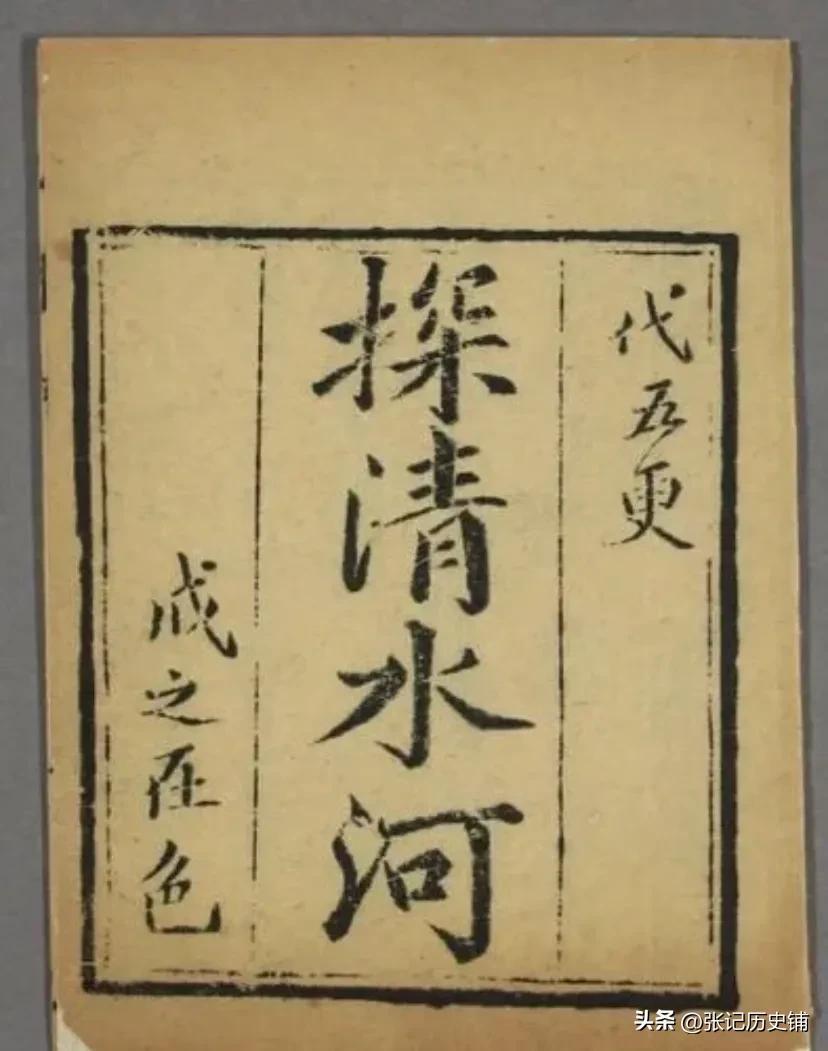 代五更
探清水河
戒之在色
头条 @张记历史铺